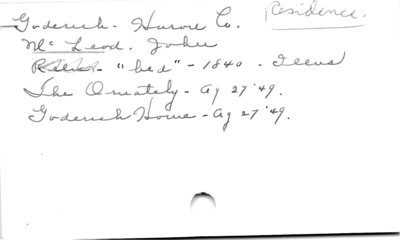 Residence.
Goderich - Huron Co.
Mc Leod, John
"bed" - 1840 -
The Ornately - Ag 27 '49.
Goderich Home - Ag 27 '49.